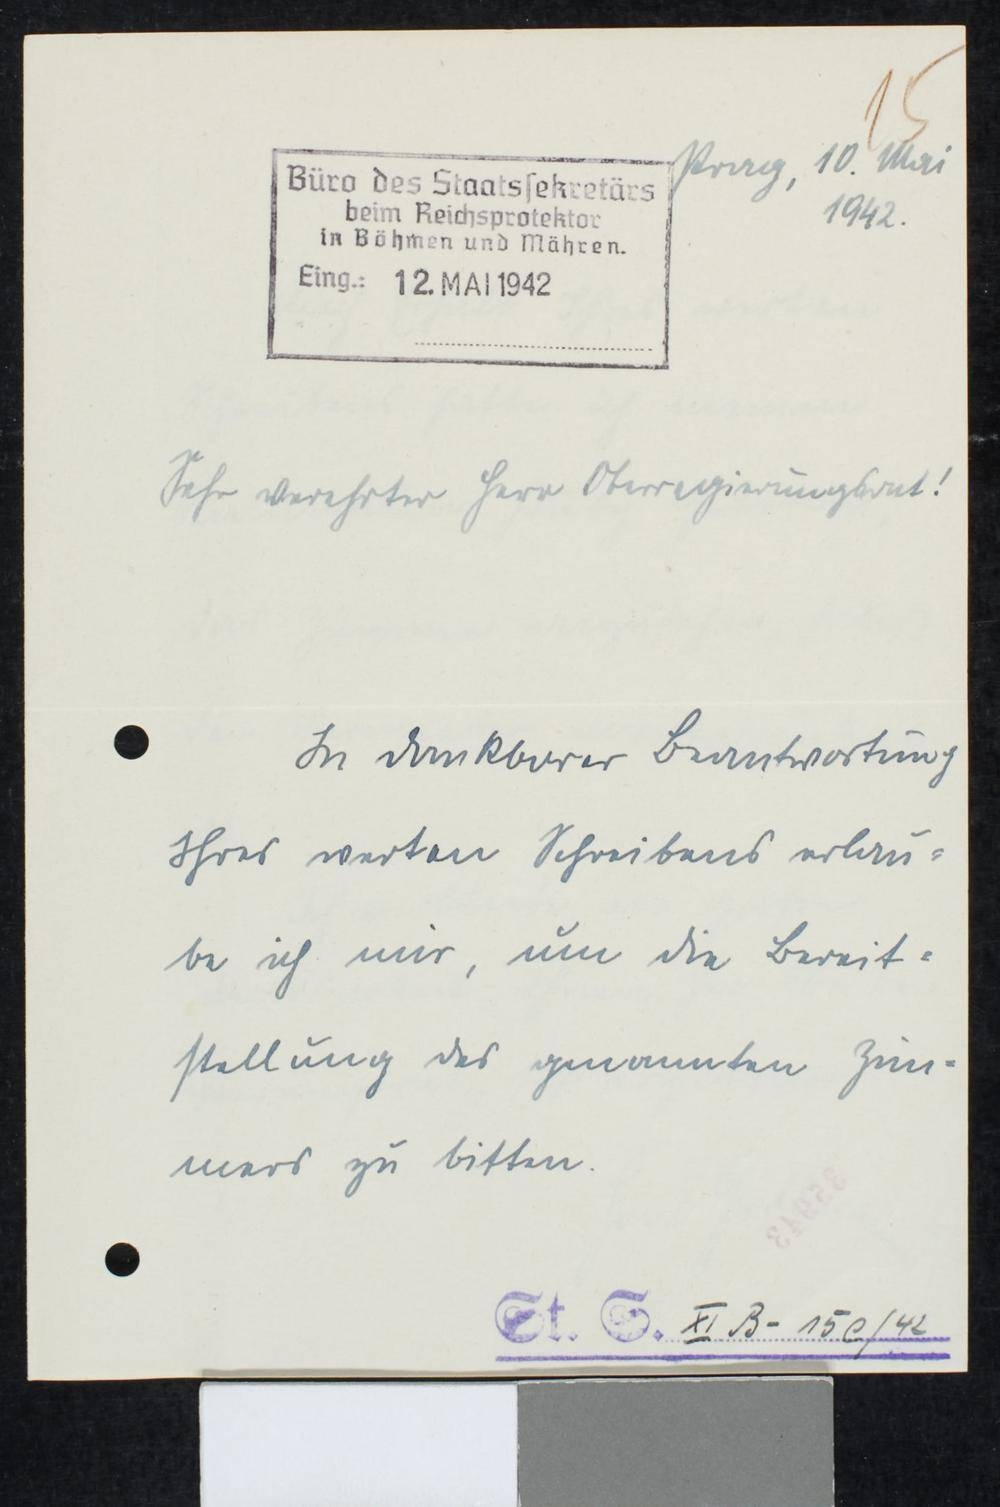 15
Prag, 10. Mai
1942.
Büro des Staatssekretärs
beim Reichsprotektor
in Böhmen und Mähren.
Eing.: 12. MAI 1942
Sehr verehrter Herr Oberregierungsrat!
In dankbarer Beantwortung
Ihres werten Schreibens erlau=
be ich mir, um die Bereit=
stellung des genannten Zim=
mers zu bitten.
St. S. XI B - 15e/42